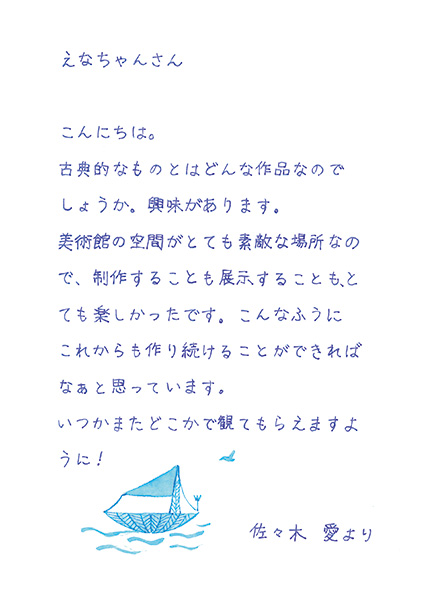 えなちゃんさん
こんにちは。
古典的なものとはどんな作品なので
しょうか。興味があります。
美術館の空間がとても素敵な場所なの
で、制作することも展示することも、と
ても楽しかったです。こんなふうに
これからも作り続けることができれば
なぁと思っています。
いつかまたどこかで観てもらえますよ
うに！
佐々木 愛より